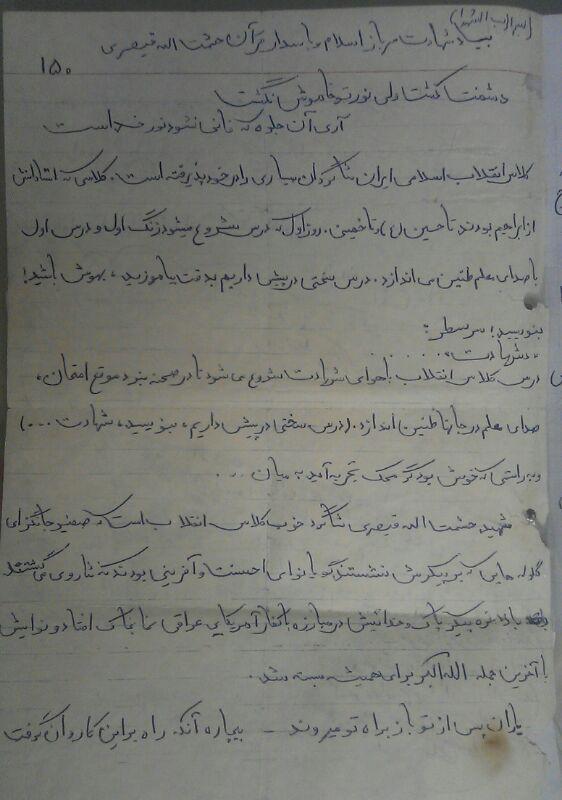 بیاد شهادت سرباز اسلام و پاسدار قرآن حشمت اله قیصری
۱۵۰
دشمنت کشت ولی نور تو خاموش نگشت
آری آن جلوه که فانی نشود نور خداست
کلاس انقلاب اسلامی ایران شاگردان بسیاری را در خود پذیرفته است. کلاسی که استادانش
از ابراهیم بودند تا حسین (ع) تا خمینی. روز اول که درس شروع میشود زنگ اول و درس اول
با صدای معلم طنین می اندازد. درس سختی در پیش داریم بدقت بیاموزید، بهوش باشید!
بنویسید! سر سطر:
«شهادت» ......
درس کلاس انقلاب با هوای شهادت شروع می شود تا در صحنه نبرد موقع امتحان،
صدای معلم در جانها طنین اندازد. (درس سختی در پیش داریم، بنویسید، شهادت ...)
و براستی که خوش بود گر محک تجربه آید به میان ...
شهید حشمت اله قیصری شاگرد خوب کلاس انقلاب است که صفیر جانگزای
گلوله هایی که بر پیکرش نشستند گویا نوای احسنت و آفرینی بودند که نثار وی می گشتند
بالاخره پیکر پاک و خدائیش در مبارزه با کفار آمریکایی عراقی بخاک افتاد و نوایش
با آخرین جمله الله اکبر برای همیشه بسته شد.
یاران پس از تو باز براه تو میروند - بیچاره آنکه راه بر این کاروان گرفت